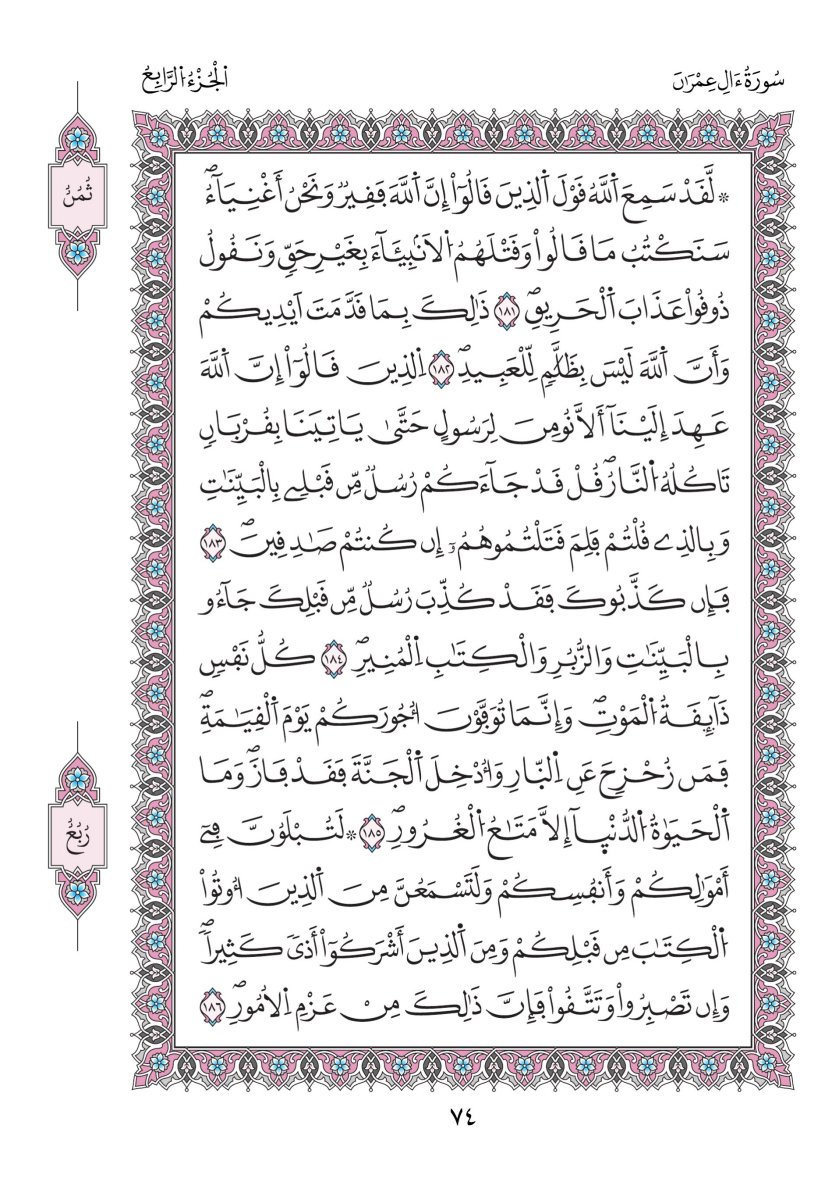 سُورَةُ ءَالِ عِمْرَٰنَ
اَلْجُزْءُ اُلرَّابِعُ
ثُمُنُ
۞ لَّقَدْ سَمِعَ اَ۬للَّهُ قَوْلَ اَ۬لذِينَ قَالُوٓاْ إِنَّ اَ۬للَّهَ فَقِيرٞ وَنَحْنُ أَغْنِيَآءُۖ
سَنَكْتُبُ مَا قَالُواْ وَقَتْلَهُمُ اُ۬لَانۢبِئَآءَ بِغَيْرِ حَقّٖ وَنَقُولُ
ذُوقُواْ عَذَابَ اَ۬لْحَرِيقِۖ ١٨١ ذَٰلِكَ بِمَا قَدَّمَتَ اَيْدِيكُمْ
وَأَنَّ اَ۬للَّهَ لَيْسَ بِظَلَّٰمٖ لِّلْعَبِيدِۖ ١٨٢ اِ۬لذِينَ قَالُوٓاْ إِنَّ اَ۬للَّهَ
عَهِدَ إِلَيْنَآ أَلَّا نُومِنَ لِرَسُولٍ حَتَّىٰ يَاتِيَنَا بِقُرْبَانٖ
تَاكُلُهُ اُ۬لنَّارُۖ قُلْ قَدْ جَآءَكُمْ رُسُلٞ مِّن قَبْلِے بِالْبَيِّنَٰتِ
وَبِالذِے قُلْتُمْ فَلِمَ قَتَلْتُمُوهُمُۥٓ إِن كُنتُمْ صَٰدِقِينَۖ ١٨٣
فَإِن كَذَّبُوكَ فَقَدْ كُذِّبَ رُسُلٞ مِّن قَبْلِكَ جَآءُو
بِالْبَيِّنَٰتِ وَالزُّبُرِ وَالْكِتَٰبِ اِ۬لْمُنِيرِۖ ١٨٤ كُلُّ نَفْسٖ
ذَآئِقَةُ اُ۬لْمَوْتِۖ وَإِنَّمَا تُوَفَّوْنَ أُجُورَكُمْ يَوْمَ اَ۬لْقِيَٰمَةِۖ
فَمَن زُحْزِحَ عَنِ اِ۬لنّ۪ارِ وَأُدْخِلَ اَ۬لْجَنَّةَ فَقَدْ فَازَۖ وَمَا
اَ۬لْحَيَوٰةُ اُ۬لدُّنْي۪آ إِلَّا مَتَٰعُ اُ۬لْغُرُورِۖ ١٨٥ ۞ لَتُبْلَوُنَّ فِےٓ
أَمْوَٰلِكُمْ وَأَنفُسِكُمْ وَلَتَسْمَعُنَّ مِنَ اَ۬لذِينَ أُوتُواْ
اُ۬لْكِتَٰبَ مِن قَبْلِكُمْ وَمِنَ اَ۬لذِينَ أَشْرَكُوٓاْ أَذىٗ كَثِيراٗۖ
وَإِن تَصْبِرُواْ وَتَتَّقُواْ فَإِنَّ ذَٰلِكَ مِنْ عَزْمِ اِ۬لُامُورِۖ ١٨٦
رُبُعُ
٧٤